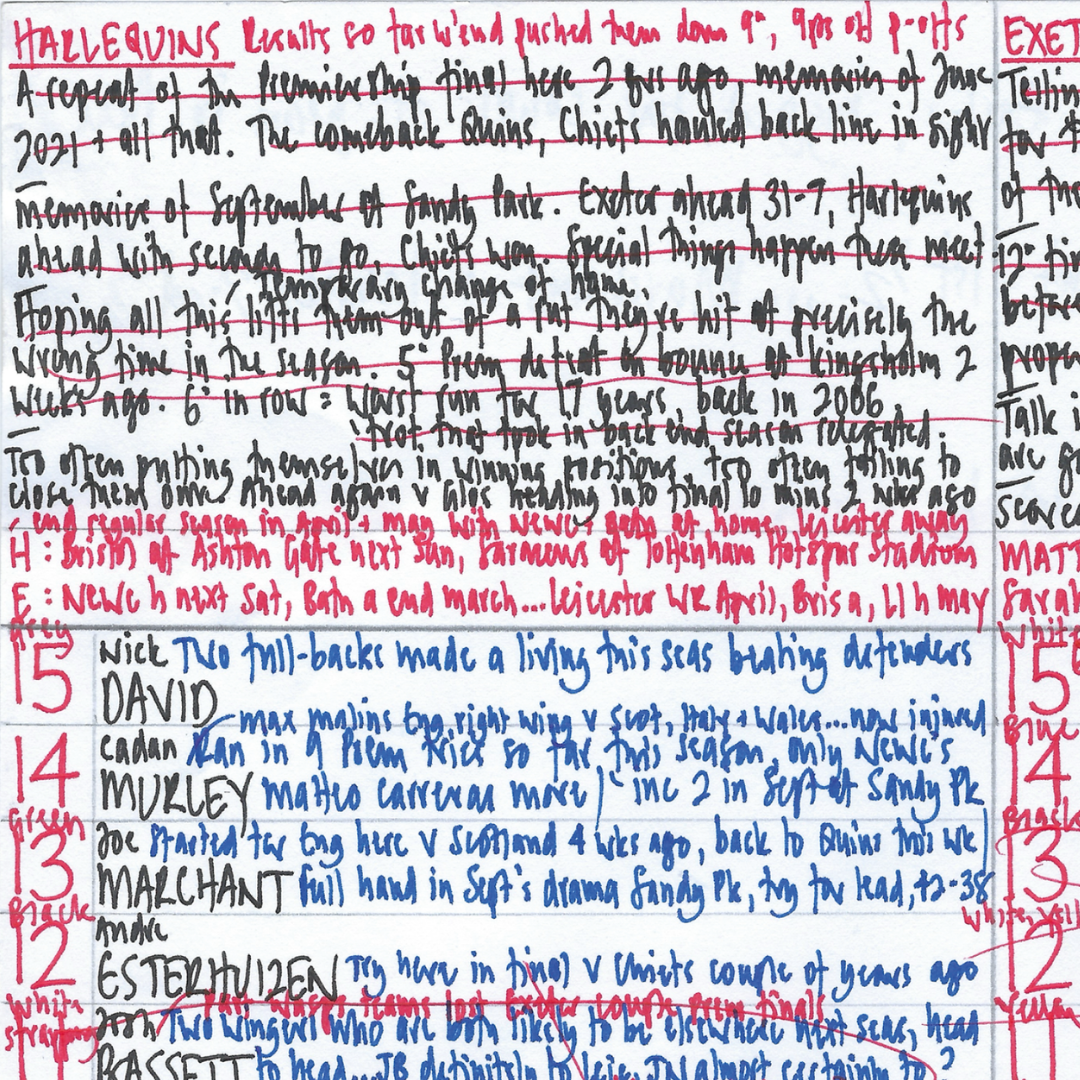 HARLEQUINS Results so far w'end pushed them down 9th, 9pts off p-offs
A repeat of the Premiership final here 2 yrs ago, memories of June
2021 + all that. The comeback Quins, Chiefs hauled back line in sight
memories of September at Sandy Park. Exeter ahead 31-7, Harlequins
ahead with seconds to go, Chiefs won. Special things happen these meet
temporary change of home
Hoping all this lifts them out of a rut they've hit at precisely the
wrong time in the season. 5th Prem defeat on bounce at Kingsholm 2
weeks ago. 6th in row = worst run for 17 years, back in 2006
that took in back end season relegated.
Too often putting themselves in winning positions, too often failing to
close them out. Ahead again v Glos heading into final 10 mins 2 wks ago
end regular season in April + May with Newc + Bath at home, Leicester away
H: Bristol at Ashton Gate next Sun, Saracens at Tottenham Hotspur Stadium
E: Newc h next Sat, Bath a end march... Leicester WR April, Bris a, LI h may
Grey
15 Nick DAVID Two full-backs made a living this seas beating defenders
max malins Eng right wing v Scot, Italy + Wales... now injured
14 Cadan MURLEY Ran in 9 Prem tries so far this season, only Newc's
matteo carreras more inc 2 in Sept at Sandy Pk
Green
13 Joe MARCHANT Started for Eng here v Scotland 4 wks ago, back to Quins this wk
Full hand in Sept's drama Sandy Pk, try for lead,
Black
12 Andre ESTERHUIZEN Try here in final v Chiefs couple of years ago
White
strapping
part wasps teams lost Exeter couple prem finals
Josh BASSETT Two wingers who are both likely to be elsewhere next seas, head
to head... JB definitely to Leic, JN almost certainly to ?
EXET
for
of the
12th
before
proper
Talk i
are
MATT
Sarah
White
15
Blue
14
Black
13
White, Yell
12
Yellow